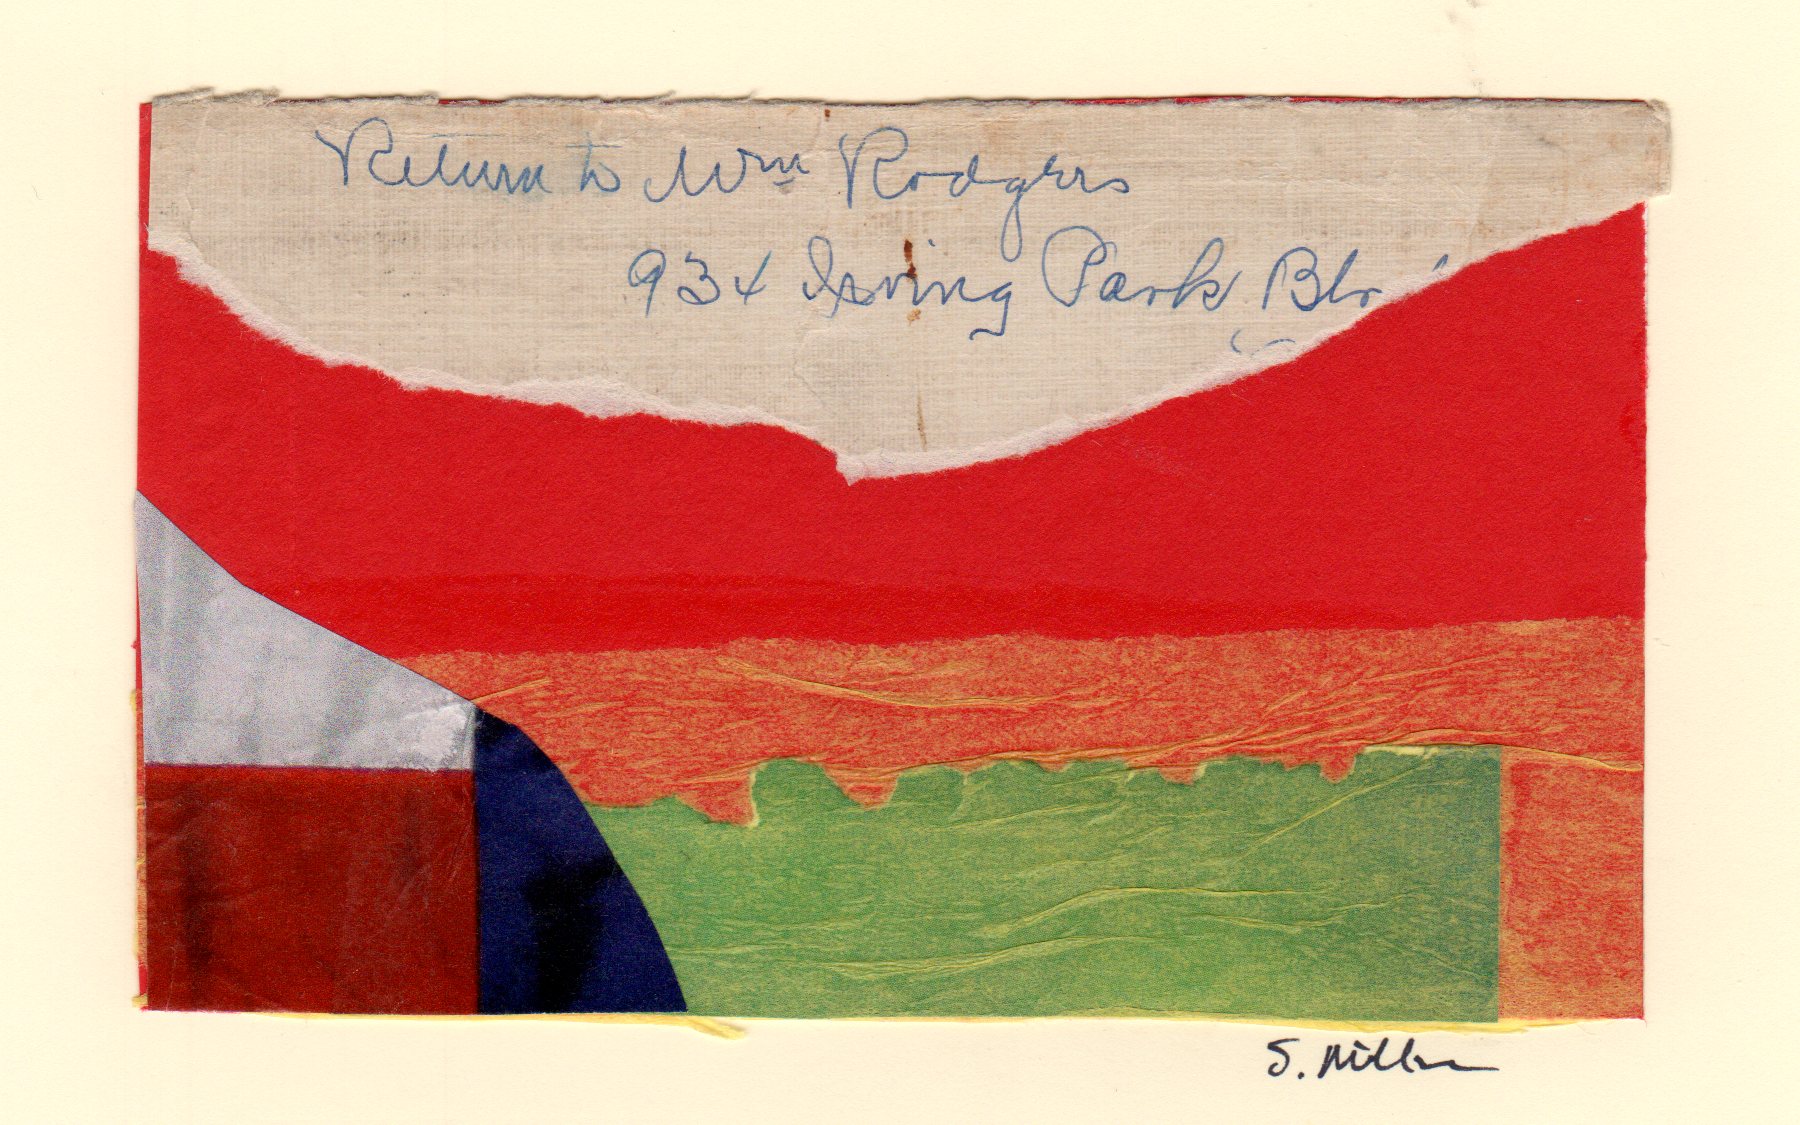 Return to Wm Rodgers
934 Irving Park Blv
S. Miller